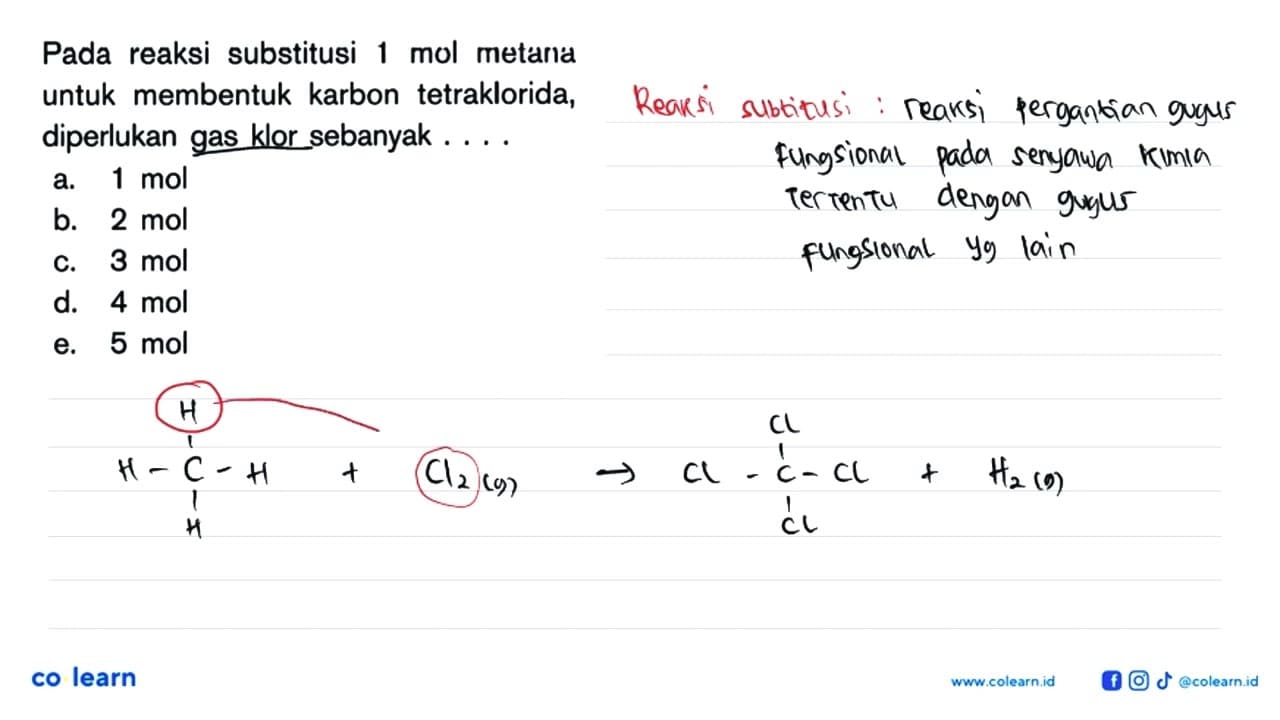 Pada reaksi substitusi 1 mol metana
untuk membentuk karbon tetraklorida,
diperlukan gas klor sebanyak . . . .
a. 1 mol
b. 2 mol
c. 3 mol
d. 4 mol
e. 5 mol
Reaksi subtitusi : reaksi pergantian gugus
fungsional pada senyawa kimia
tertentu dengan gugus
fungsional yg lain
H
H - C - H + Cl2 (g) → Cl - C - Cl + H2 (g)
H
Cl
Cl
co learn
www.colearn.id
@colearn.id